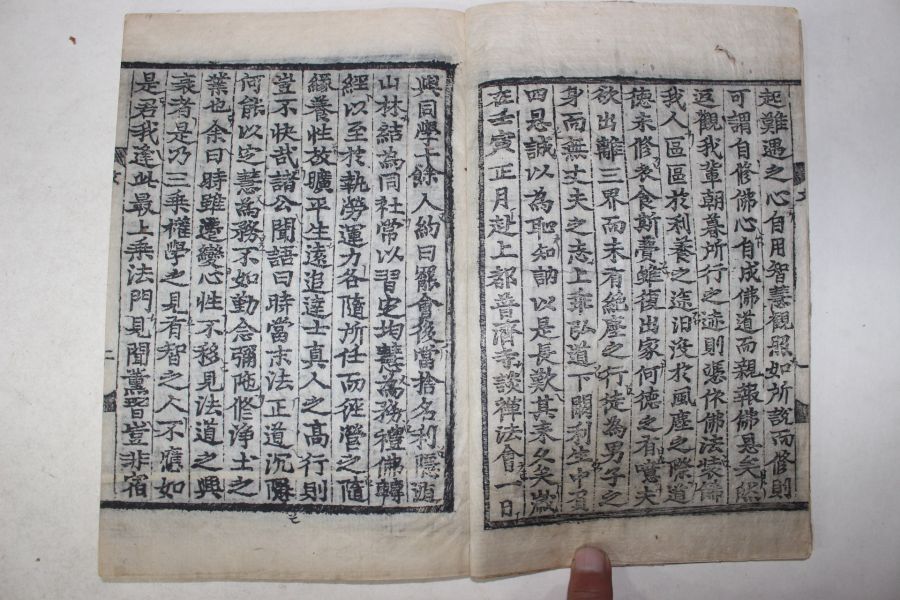 起難遇之心自用智慧觀照如所說而修則
可謂自修佛心自成佛道而親報佛恩矣然
返觀我輩朝暮所行之迹則憑依佛法裝飾
我人區區於利養之途汨沒於風塵之際道
德未修衣食斯費雖復出家何德之有噫夫
欲出離三界而未有絶塵之行徒為男子之
身而無丈夫之志上乖弘道下闕利生中負
四恩誠以為恥知訥以是長歎其來久矣歲
在壬寅正月赴上都普濟寺談禪法會一日
與同學十餘人約曰罷會後當捨名利隱遁
山林結為同社常以習定均慧為務禮佛轉
經以至於執勞運力各隨所任而經營之隨
緣養性放曠平生遠追達士真人之高行則
豈不快哉諸公聞語曰時當末法正道沉隱
何能以定慧為務不如勤念彌陁修淨土之
業也余曰時雖遷變心性不移見法道之興
衰者是乃三乘權學之見有智之人不應如
是君我逢此最上乘法門見聞薰習豈非宿